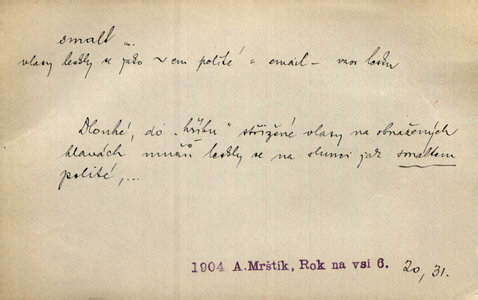 smalt
vlasy leskly se jako ~em polité = email –
Dlouhé, do „hřibu" střižené vlasy na obnažených
hlavách mužů leskly se na slunci jak smaltem
polité,...
1904 A.Mrštík, Rok na vsi 6. 20, 31.